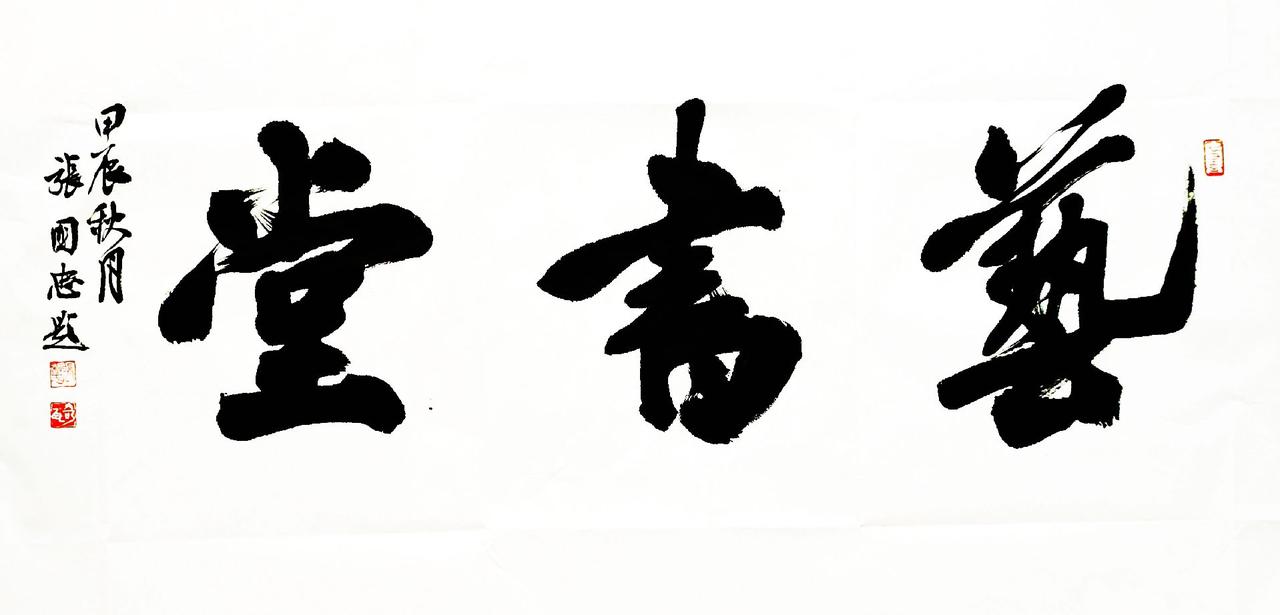 藝書堂
甲辰秋月
張國忠題